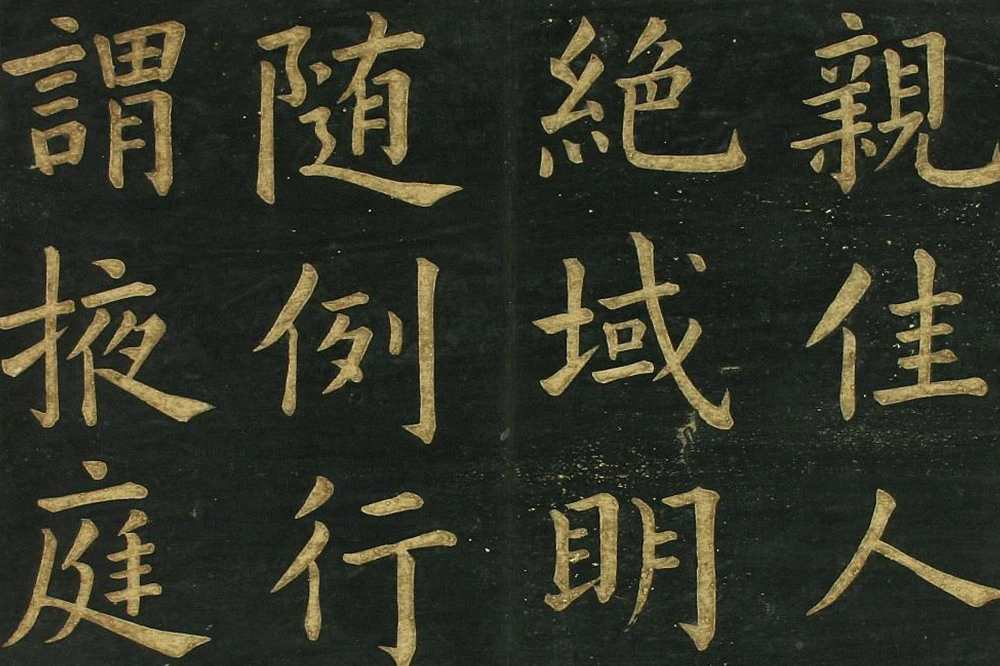 親佳人
絶域明
随例行
謂掖庭